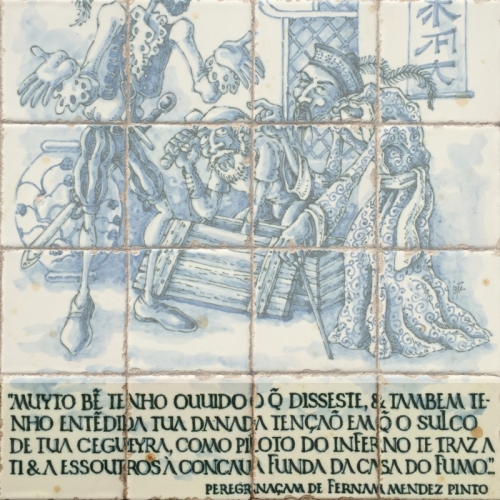 木
不
大
"MUYTO BẼ TENHO OUUIDO O Q̃ DISSESTE, & TAMBEM TE-
NHO ENTẼDIDA TUA DANADA TENÇAÕ EM Q̃ O SULCO
DE TUA CEGUEYRA, COMO PILOTO DO INFERNO TE TRAZ A
TI & A ESSOUTROS À CONCAUA FUNDA DA CASA DO FUMO."
PEREGRINAÇAM DE FERNAM MENDEZ PINTO